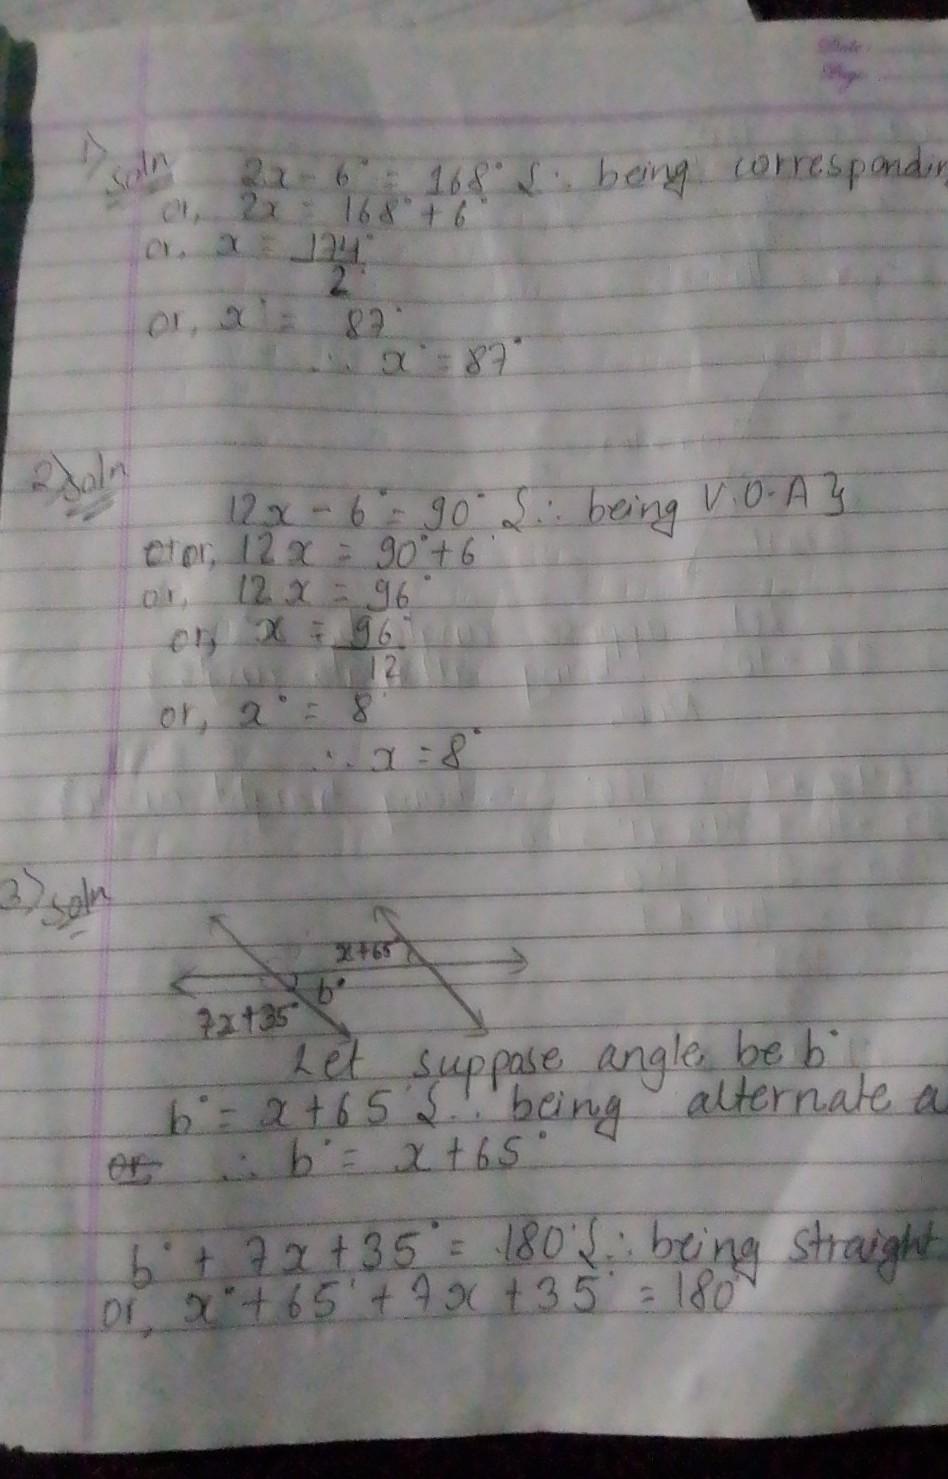 Date:
Page
1) Soln 2x - 6° = 168° {∵ being correspondin
or, 2x = 168° + 6°
or, x = 174°
2
or, x° = 87°
∴ x° = 87°
2) Soln
12x - 6° = 90° {∵ being V.O.A}
or, 12x = 90° + 6°
or, 12x = 96°
or, x = 96°
12
or, x° = 8°
∴ x = 8°
3) Soln
x+65°
b°
7x+35°
Let suppose angle be b°
b° = x+65° {∵ being alternate a
or ∴ b° = x+65°
b° + 7x+35° = 180° {∵ being straight
or, x°+65°+7x+35° = 180°